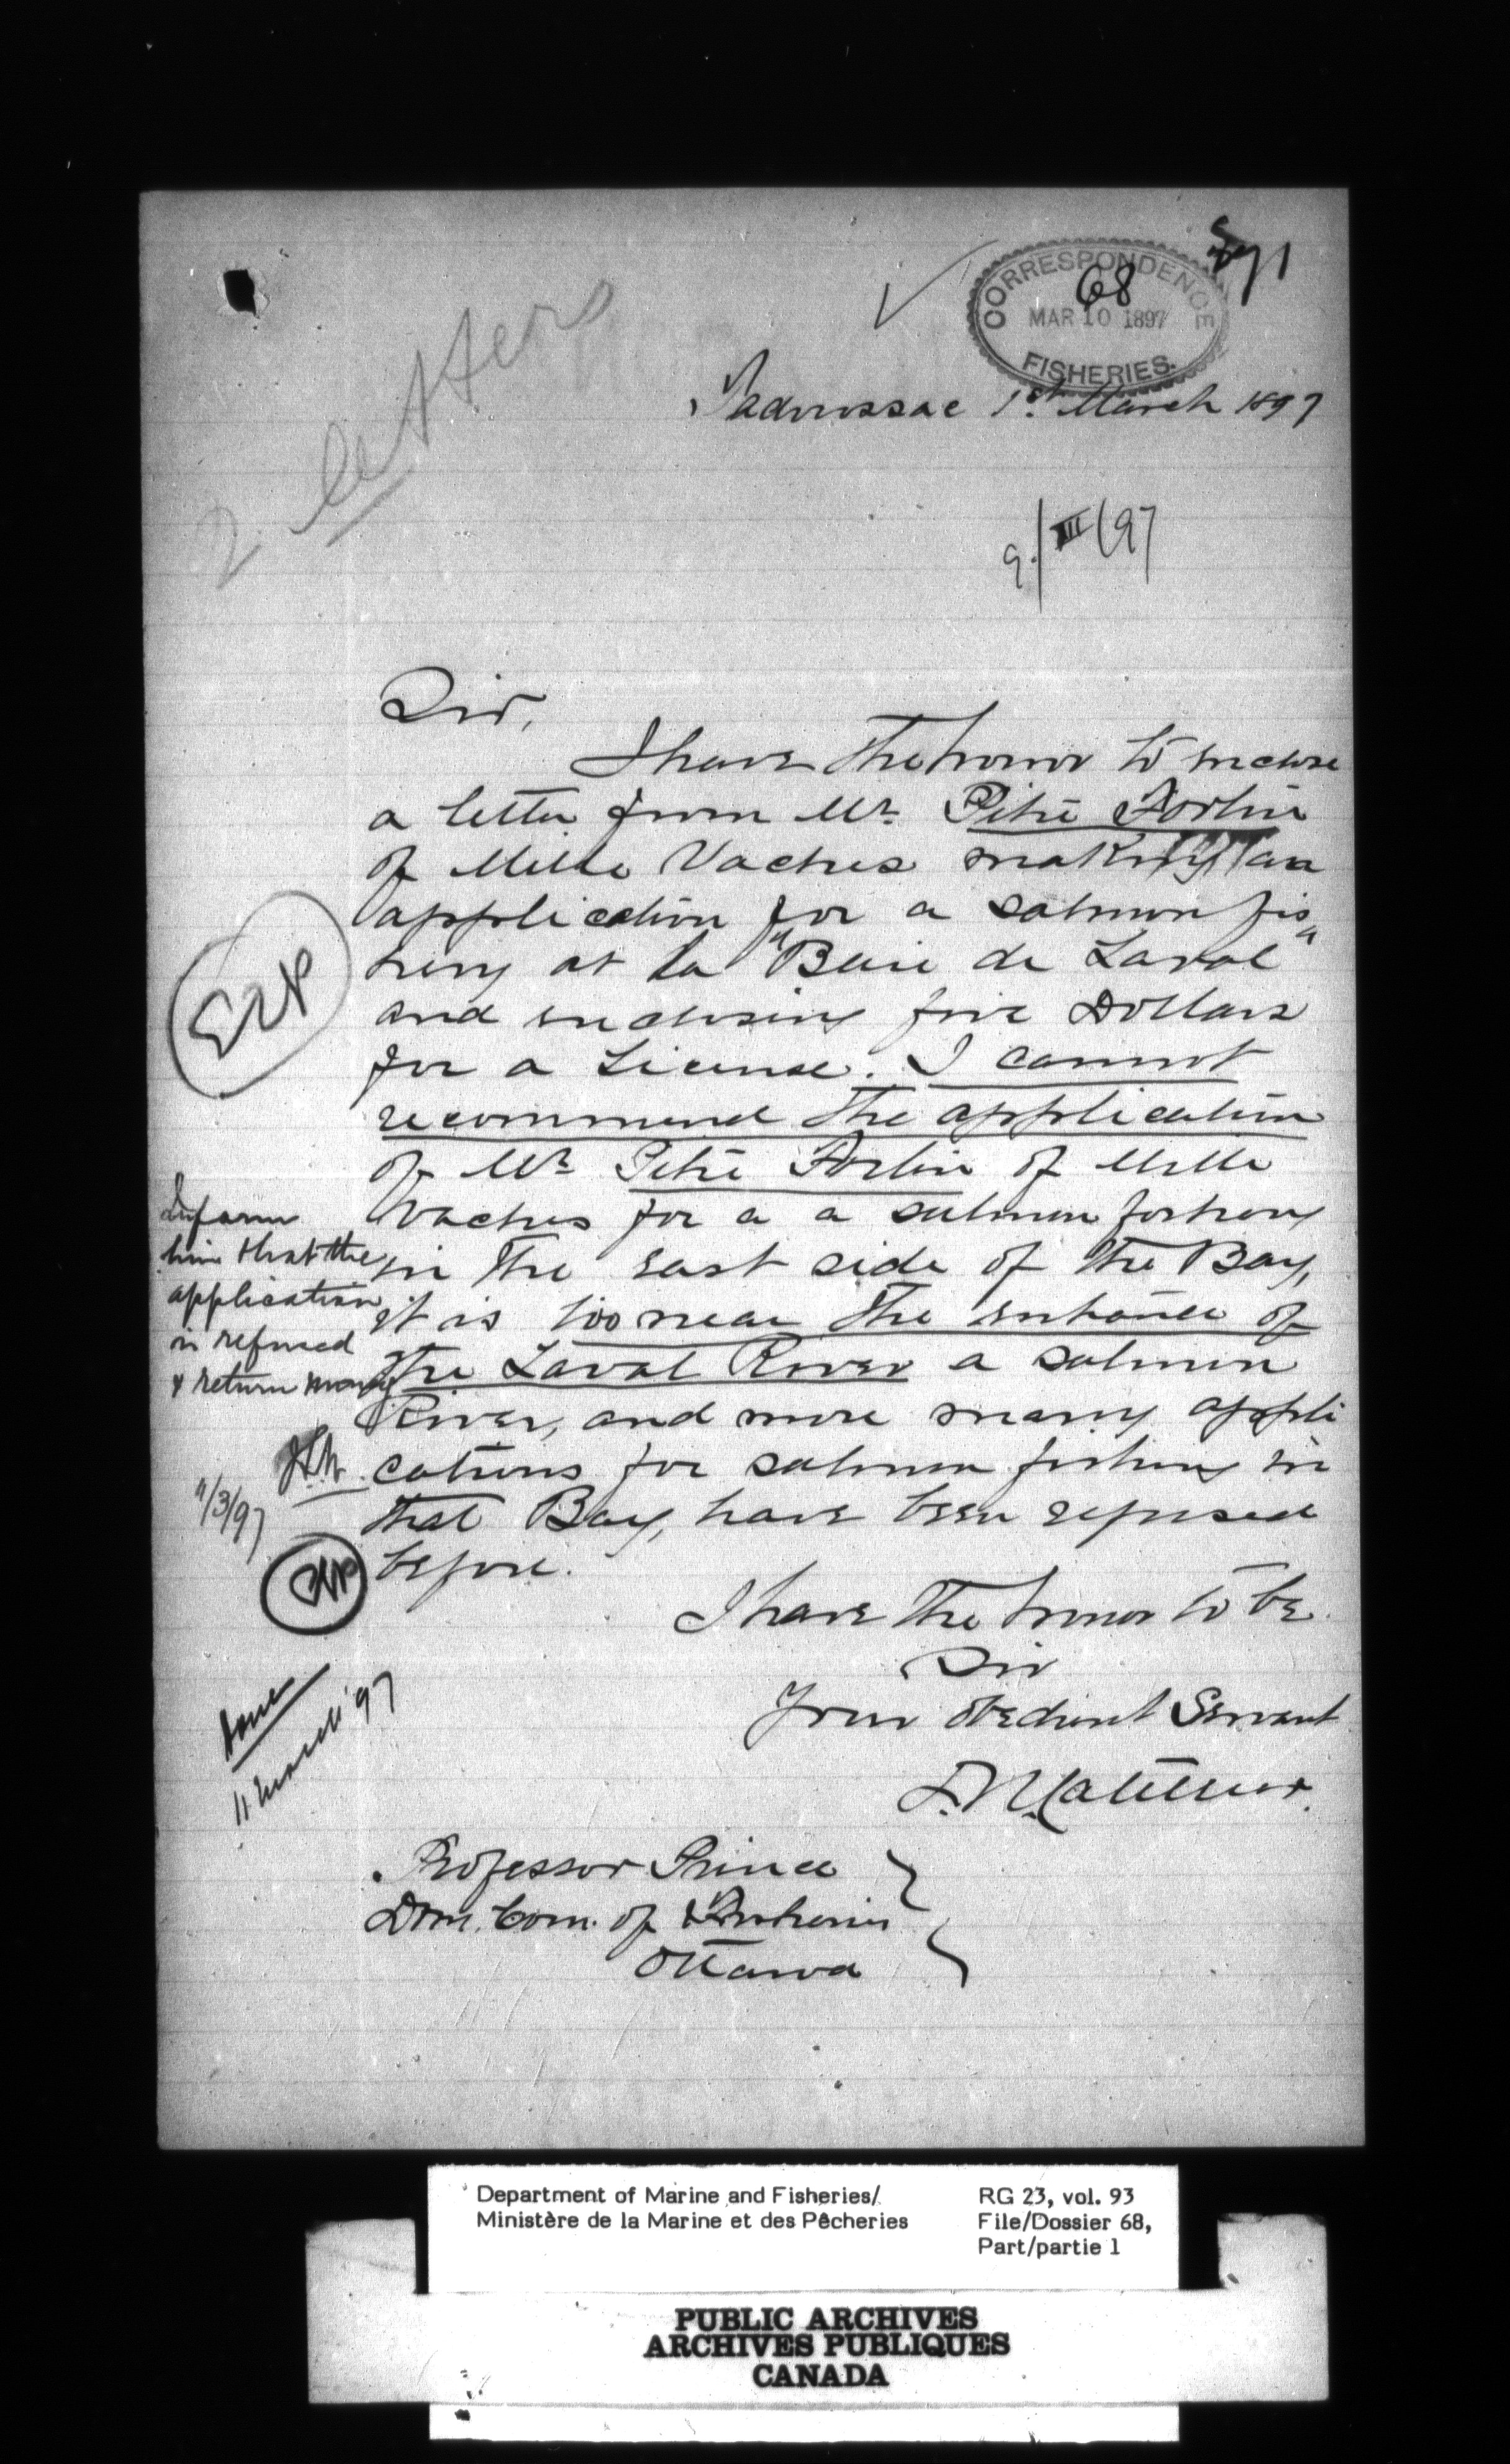 871
CORRESPONDENCE
68
MAR 10 1897
FISHERIES.
2 letters
Tadoussac 1st March 1897
9/III/97
Sir,
I have the honor to inclose
a letter from Mr. Pitre Fortin
of Mille Vaches making an
application for a salmon fis
hery at la "Baie de Laval"
and inclosing five Dollars
for a License. I cannot
recommend the application
of Mr Pitre Fortin of Mille
Vaches for a a salmon fishery
in the east side of the Bay,
it is too near the entrance of
the Laval River a salmon
River, and more many appli
cations for salmon fishing in
that Bay, have been refused
before.
I have the honor to be
Sir
Your obedient Servant
Inform
him that the
application
is refused
& return money
11/3/97
Done
11 March '97
Professor Prince
Dom. Com. of Fisheries
Ottawa
Department of Marine and Fisheries/
Ministère de la Marine et des Pêcheries
RG 23, vol. 93
File/Dossier 68,
Part/partie 1
PUBLIC ARCHIVES
ARCHIVES PUBLIQUES
CANADA